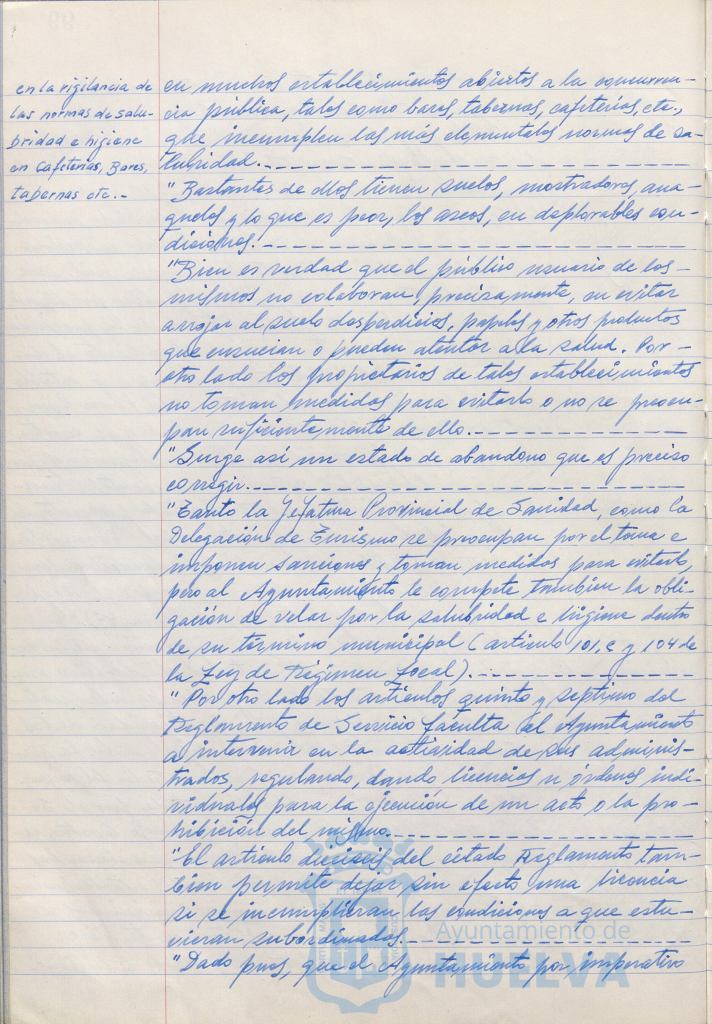 en la vigilancia de
las normas de salu-
bridad e higiene
en Cafeterías, Bares,
tabernas etc.-
en muchos establecimientos abiertos a la concurren-
cia pública, tales como bares, tabernas, cafeterías, etc.,
que incumplen las más elementales normas de sa-
lubridad.
"Bastantes de ellos tienen suelos, mostradores, ana-
queles y lo que es peor, los aseos, en deplorables con-
diciones.
"Bien es verdad que el público usuario de los
mismos no colaboran, precisamente, en evitar
arrojar al suelo desperdicios, papeles y otros productos
que ensucian o pueden atentar a la salud. Por
otro lado los propietarios de tales establecimientos
no toman medidas para evitarlo o no se preocu-
pan suficientemente de ello.
"Surge así un estado de abandono que es preciso
corregir.
"Tanto la Jefatura Provincial de Sanidad, como la
Delegación de Turismo se preocupan por el tema e
imponen sanciones y toman medidas para evitarlo,
pero al Ayuntamiento le compete también la obli-
gación de velar por la salubridad e higiene dentro
de su término municipal (artículo 101, c y 104 de
la Ley de Régimen Local).
"Por otro lado los artículos quinto y séptimo del
Reglamento de Servicio faculta al Ayuntamiento
a intervenir en la actividad de sus adminis-
trados, regulando, dando licencias u órdenes indi-
viduales para la ejecución de un acto o la pro-
hibición del mismo.
"El artículo dieciseis del citado Reglamento tam-
bien permite dejar sin efecto una licencia
si se incumplieran las condiciones a que estu-
vieran subordinadas.
"Dado pues, que el Ayuntamiento por imperativo
Ayuntamiento de
HUELVA